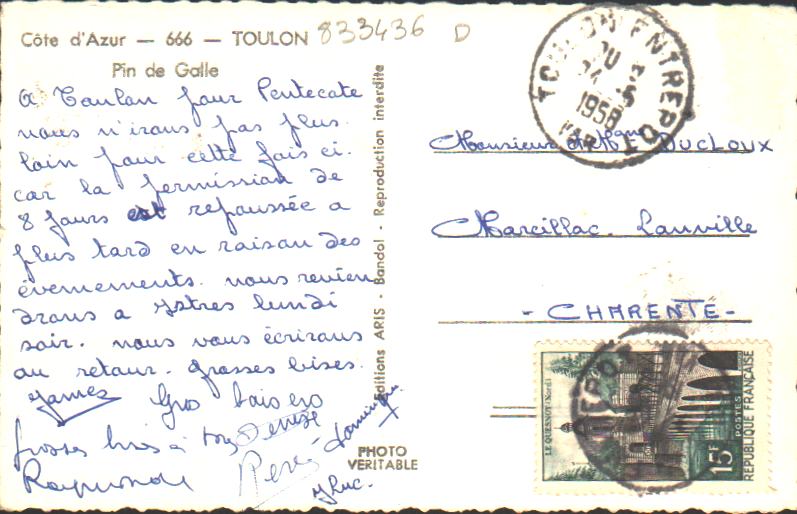 Côte d'Azur — 666 — TOULON 833436 D
Pin de Galle
A Toulon pour Pentecate
nous n'irons pas plus
loin pour cette fois ci.
car la permission de
8 jours est repoussée a
plus tard en raison des
évenements. nous revien
drons a Istres lundi
soir. nous vous écrirons
au retour. grosses bises.
James Gros baisers
grosses bises à tous Denise
Dominique
Raymonde René
Luc.
Editions ARIS - Bandol - Reproduction interdite
PHOTO
VERITABLE
TOULON ENTREPOT
1958
VAR
Monsieur et Mme DUCLOUX
Marcillac. Lanville
- CHARENTE -
LE QUESNOY (Nord)
15F
POSTES
REPUBLIQUE FRANÇAISE